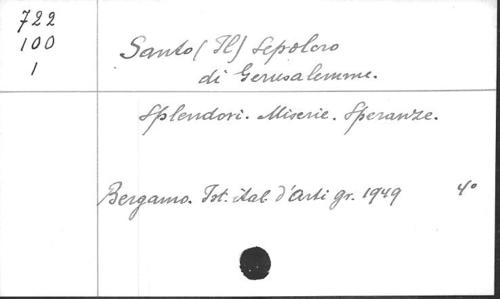 722
100
1
Santo (Il) Sepolcro
di Gerusalemme.
Splendori. Miserie. Speranze.
Bergamo. Ist. ital. d'Arti gr. 1949 4°